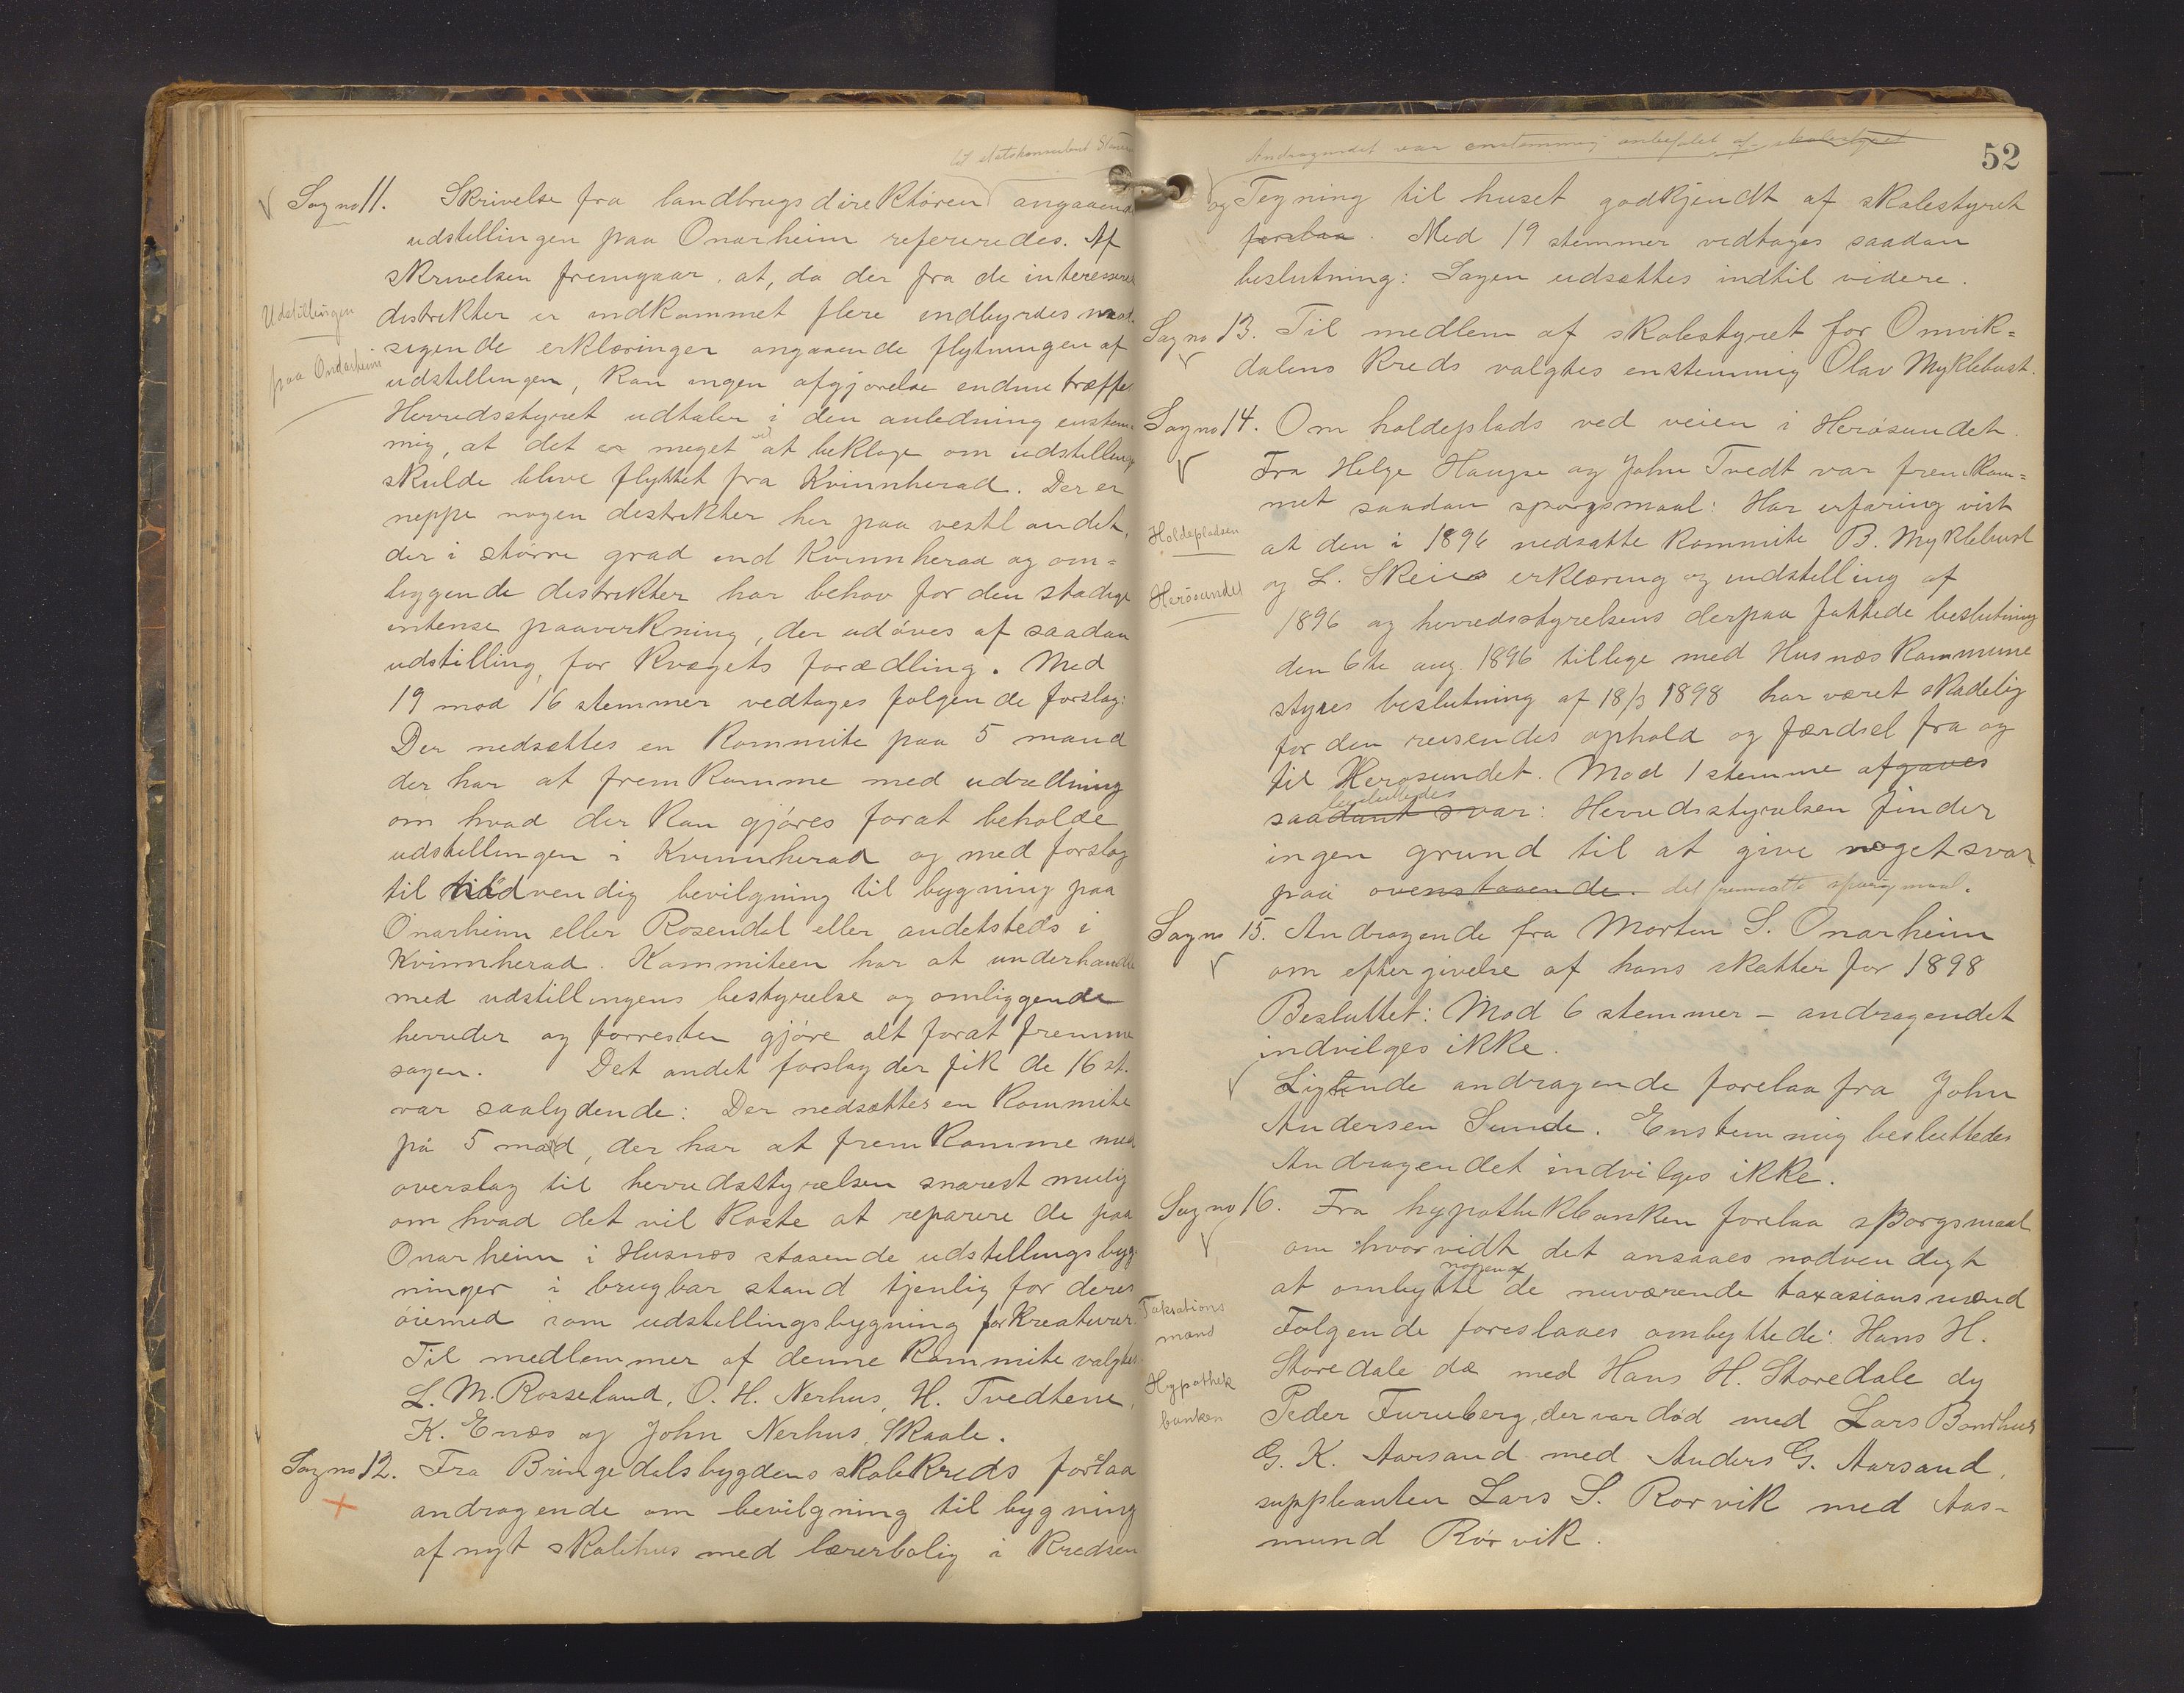 til statskonsulent
Sag no 11. Skrivelse fra landbrugsdirektøren angaaende
udstillingen paa Onarheim refereredes. Af
skrivelsen fremgaar at, da der fra de interessered
distrikter er indkommet flere indbyrdes mod-
Udstillingen
sigende erklæringer angaaende flytningen af
paa Ondarheim
udstillingen, kan ingen afgjørelse endnu træffes
Herredsstyret udtaler i den anledning enstem-
mig, at det er meget at beklage om udstilling
skulde blive flyttet fra Kvinnherad. Der er
neppe nogen destrikter her paa vestlandet,
der i større grad end Kvinnherad og om=
liggende destrikter har behov for den stadige
intense paavirkning, der udøves af saadan
udstilling, for kvægets forædling. Med
19 mod 16 stemmer vedtages følgende forslag:
Der nedsættes en Kommite paa 5 mand
der har at fremkomme med udredning
om hvad der kan gjøres forat beholde
udstillingen i Kvinnherad og med forslag
til nødvendig bevilgning til bygning paa
Onarheim eller Rosendal eller andetsteds i
Kvinnherad. Kommiteen har at underhandle
med udstillingens bestyrelse og omliggende
herreder og forresten gjøre alt forat fremme
sagen. Det andet forslag der fik de 16 st.
var saalydende: Der nedsættes en Kommite
på 5 mand, der har at fremkomme med
overslag til herredsstyrelsen snarest mulig
om hvad det vil koste at reparere de paa
Onarheim i Husnæs staaende udstillingsbyg-
ninger i brugbar stand tjenlig for deres
øiemed som udstillingsbygning for kreaturer.
Til medlemmer af denne Kommite valgtes
L. M. Rosseland, O. H. Nerhus, H. Tvedtene,
K. Enæs og John Nerhus, Skaale.
Sag no 12. Fra Bringedalsbygdens skolekreds forelaa
andragende om bevilgning til bygning
af nyt skolehus med lærerbolig i kredsen
52
Andragendet var enstemmig anbefalet af skolestyret
og Tegning til huset godkjendt af skolestyret
forelaa. Med 19 stemmer vedtages saadan
beslutning: Sagen udsættes indtil videre.
Sag no 13. Til medlem af skolestyret for Omvik=
dalens kreds valgtes enstemmig Olav Myklebust.
Sag no 14. Om holdeplads ved veien i Herøsundet.
Fra Helge Haugse og John Tvedt var fremkom=
met saadan spørgsmaal: Har erfaring vist
Holdepladsen
at den i 1896 nedsatte kommite B. Myklebust
Herøsundet
og L. Skeies erklæring og indstilling af
1896 og herredsstyrelsens derpaa fattede beslutning
den 6te aug. 1896 tillige med Husnæs kommune
styres beslutning af 18/3 1898 har været skadelig
for den reisendes ophold og færdsel fra og
til Herøsundet. Mod 1 stemme afgaves
besluttedes
saadant svar: Herredsstyrelsen finder
ingen grund til at give noget svar
paa ovenstaaende. det fremsatte spørgsmaal.
Sag no 15. Andragende fra Morten S. Onarheim
om eftergivelse af hans skatter for 1898
Besluttet: Mod 6 stemmer – andragendet
indvilges ikke.
Ligtende andragende forelaa fra John
Andersen Sunde. Enstemmig besluttedes
Andragendet indvilges ikke.
Sag no 16. Fra hypothekbanken forelaa spørgsmaal
om hvorvidt det ansaaes nødvendigt
nogen af
at ombytte de nuværende taxasionsmænd
Taksations
mænd
Følgende foreslaaes ombyttede: Hans H.
Storedale dæ med Hans H. Storedale dy
Hypothek
banken
Peder Furuberg, der var død med Lars Bondhus
G. K. Aarsand med Anders G. Aarsand,
suppleanten Lars S. Rørvik med Aas-
mund Rørvik.